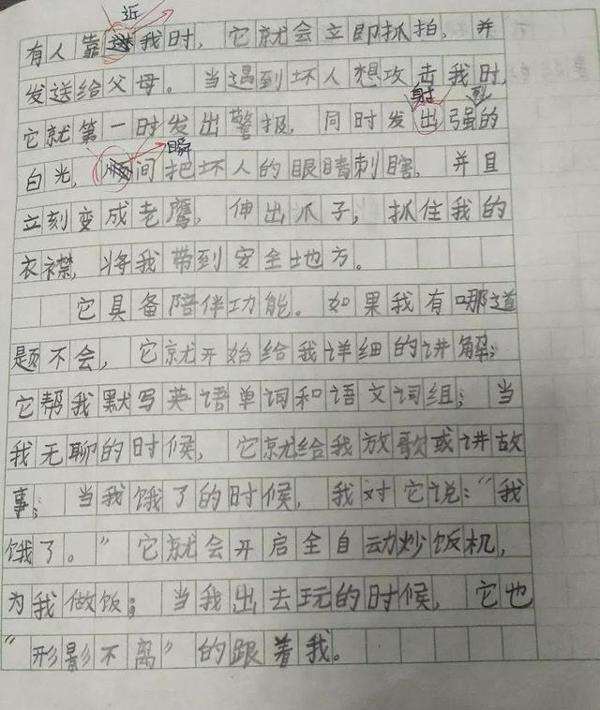 近
有人靠我时，它就会立即抓拍，并
发送给父母。当遇到坏人想攻击我时，
射
它就第一时发出警报，同时发出强的
瞬
白光，间把坏人的眼睛刺瞎，并且
立刻变成老鹰，伸出爪子，抓住我的
衣襟，将我带到安全地方。
它具备陪伴功能。如果我有哪道
题不会，它就开始给我详细的讲解；
它帮我默写英语单词和语文词组；当
我无聊的时候，它就给我放歌或讲故
事；当我饿了的时候，我对它说：“我
饿了。”它就会开启全自动炒饭机，
为我做饭；当我出去玩的时候，它也
“形影不离”的跟着我。